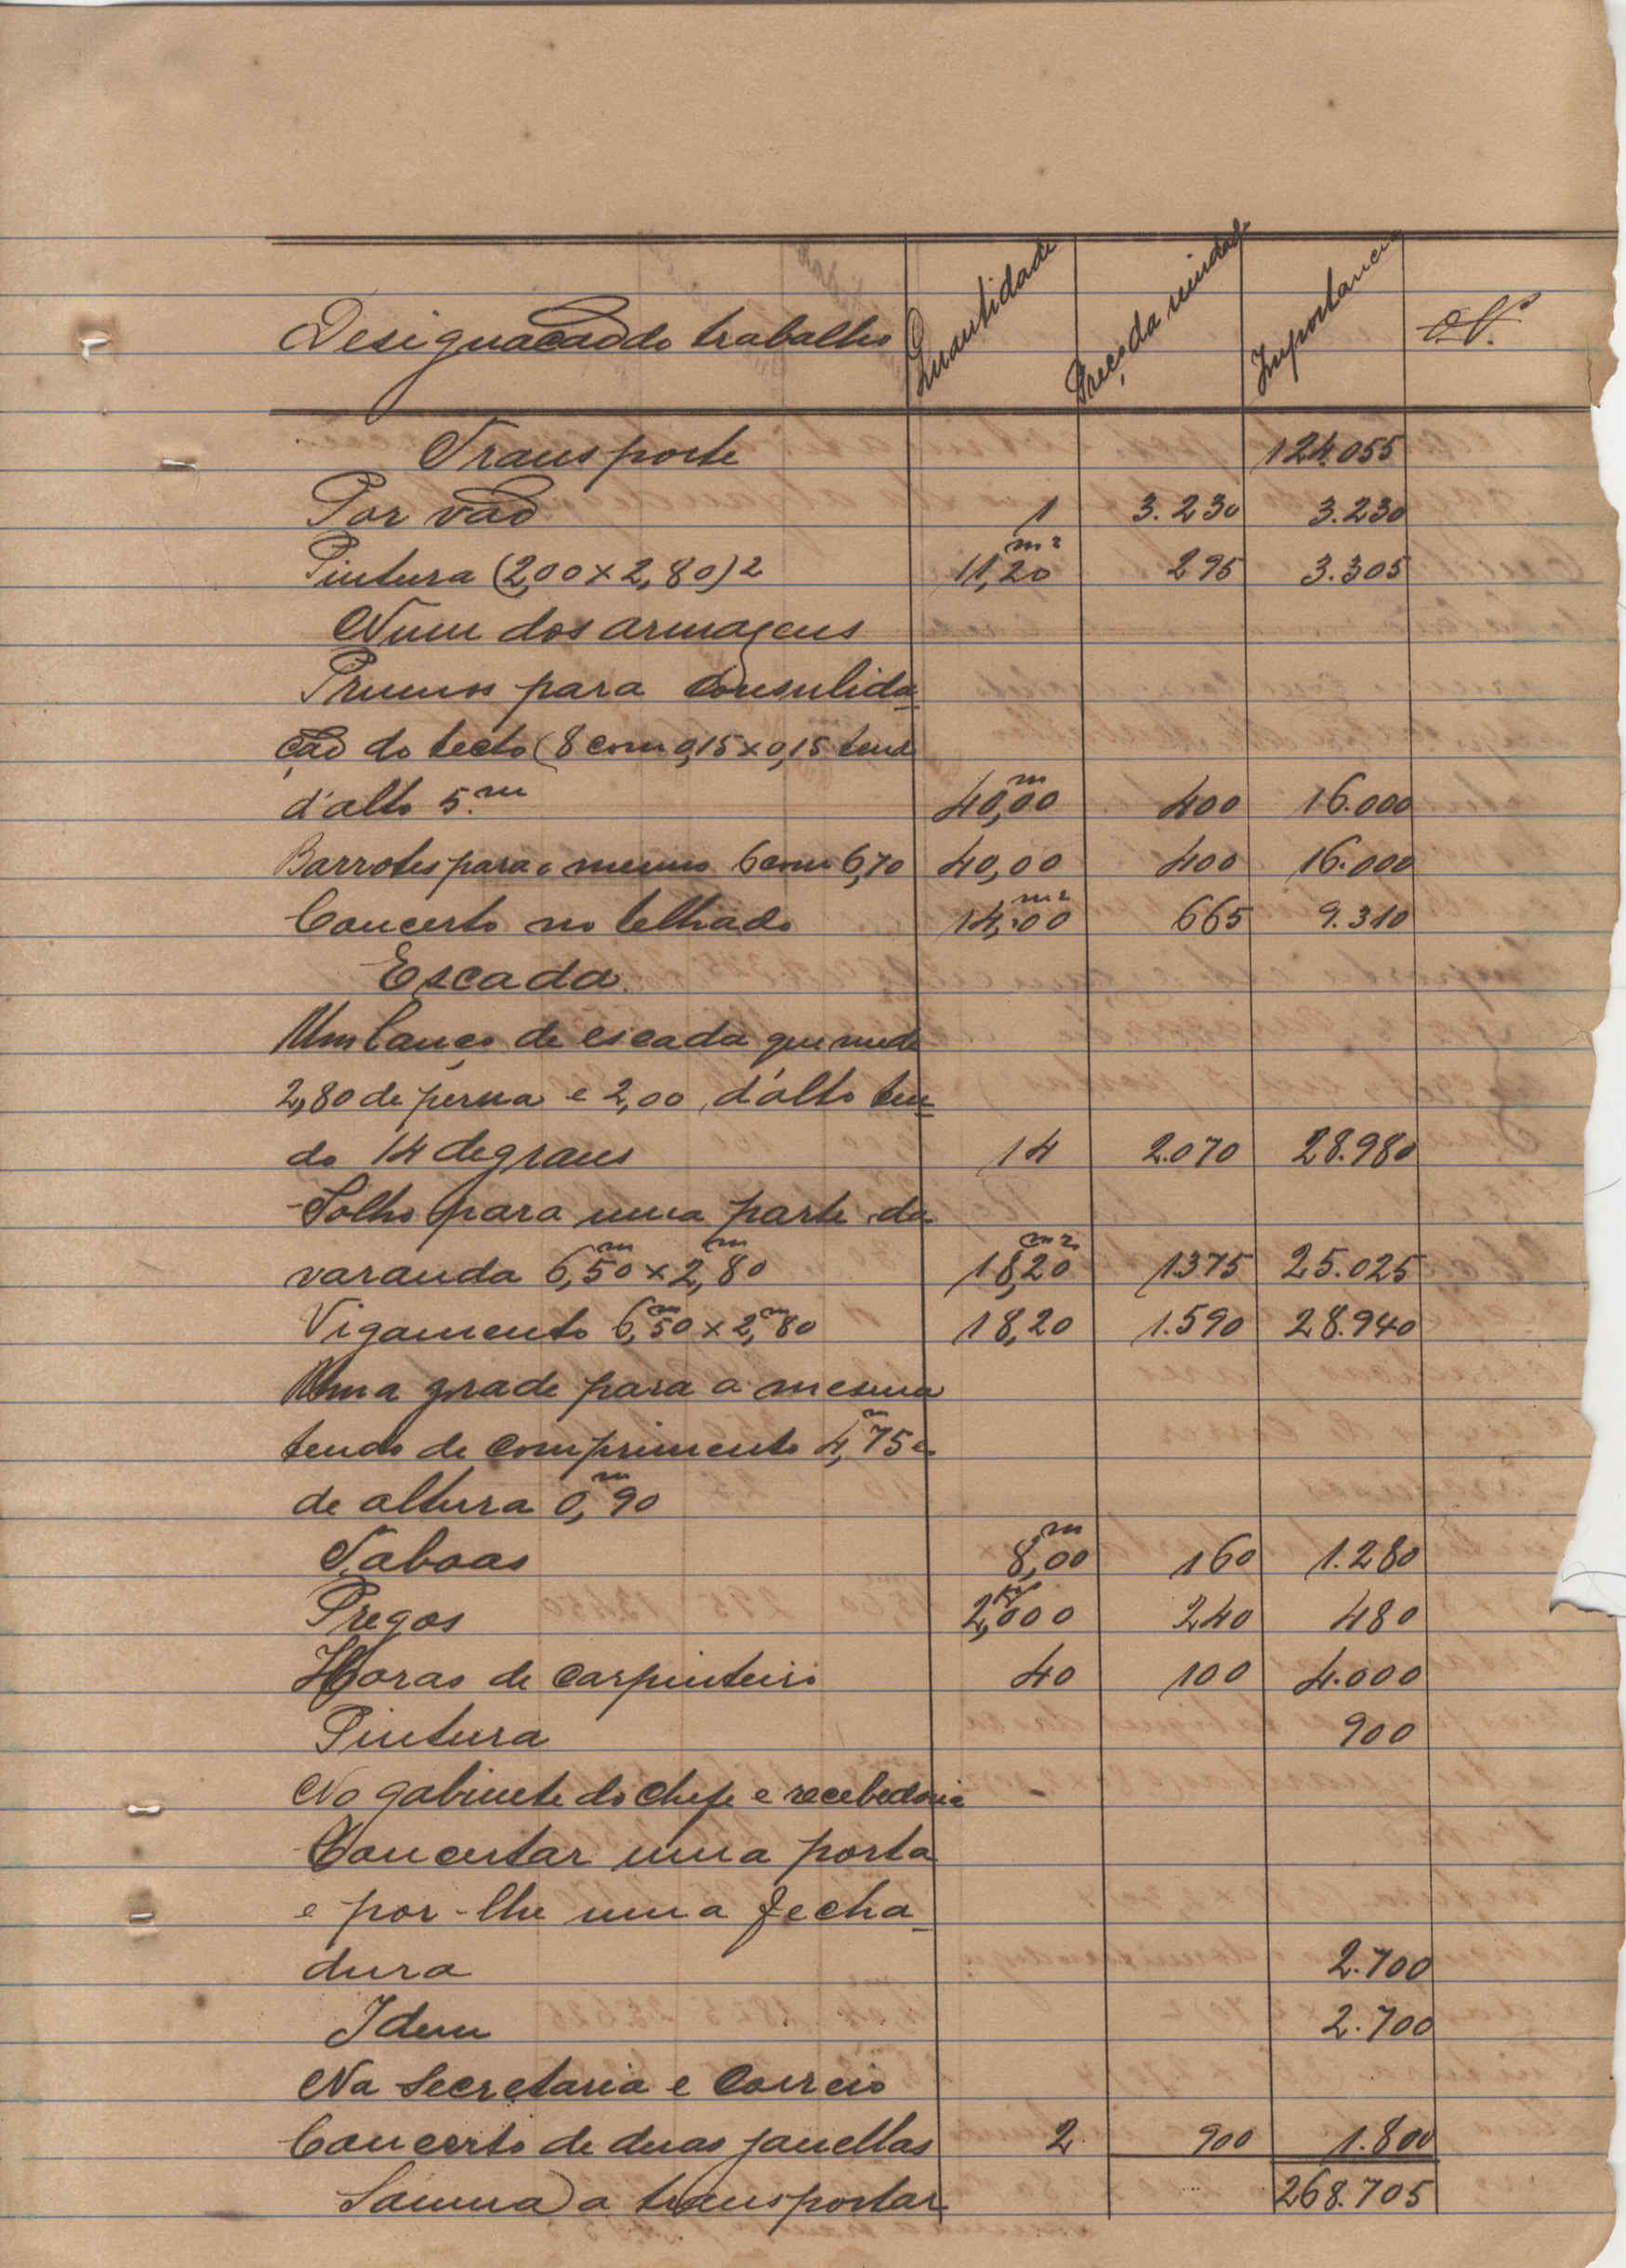 Designação do trabalho Quantidade Preço da unidade Importancia
Transporte 124.055
Por vão 1 3.230 3.230
Pintura (2,00 x 2,80) 2 11,20 m2 295 3.305
Num dos armazens
Prumos para consulida-
ção do tecto (8 com 0,15 x 0,15 tend
d'alto 5.m 40,00 m 400 16.000
Barrotes para o mesmo 6 com 6,70 40,00 400 16.000
Concerto no telhado 14,00 m2 665 9.310
Escada
Um lanço de escada que mede
2,80 de perna e 2,00 d'alto ten-
do 14 degraus 14 2.070 28.980
Solho para uma parte da
varanda 6,50 m x 2,80 m 18,20 m2 1375 25.025
Vigamento 6,50 m x 2,80 m 18,20 1.590 28.940
Uma grade para a mesma
tendo de comprimento 4,75 m e
de altura 0,90 m
Taboas 8,00 m 160 1.280
Pregos 2,000 240 480
Horas de carpinteiro 40 100 4.000
Pintura 900
No gabinete do chefe e recebedoria
Concertar uma porta
e por-lhe uma fecha-
dura 2.700
Idem 2.700
Na Secretaria e Correio
Concerto de duas janellas 2 900 1.800
Somma a transportar 268.705